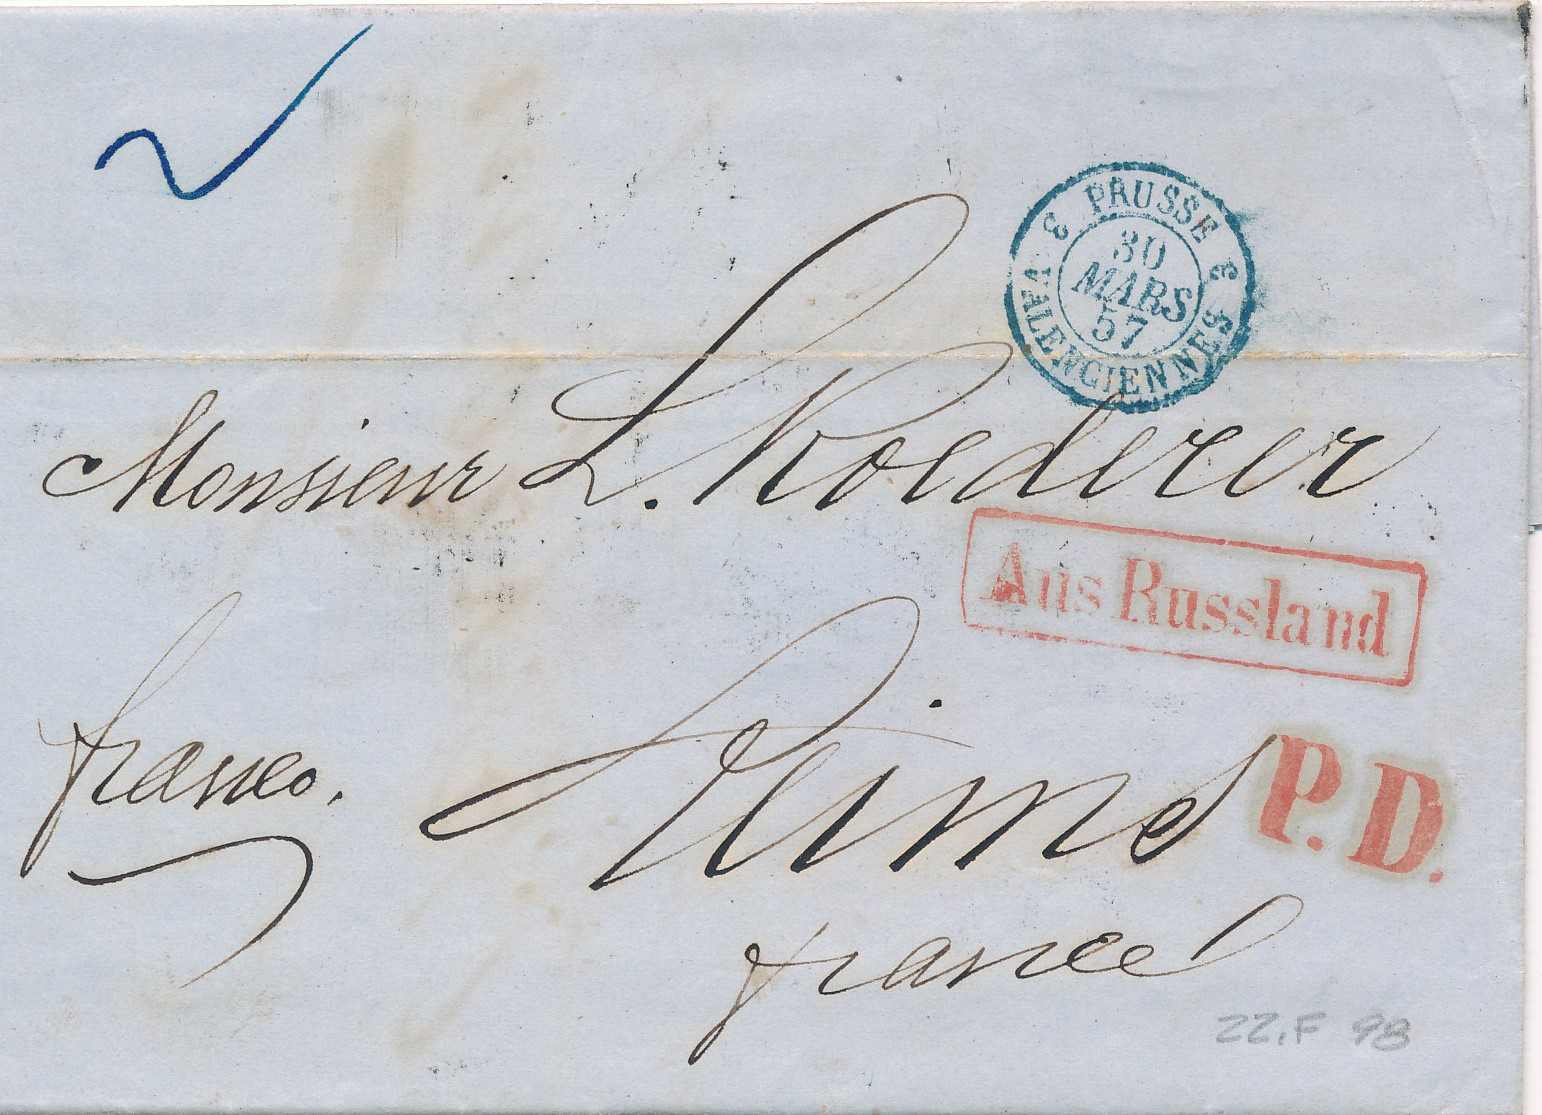 3 PRUSSE 3
30
MARS
57
VALENCIENNES
Monsieur L. Roederer
Aus Russland
franco.
Reims
P.D.
france
22.F 98